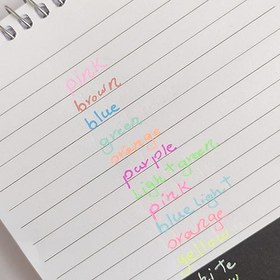 pink
brown
blue
green
orange
purple
light green
pink
blue light
orange
yellow
white